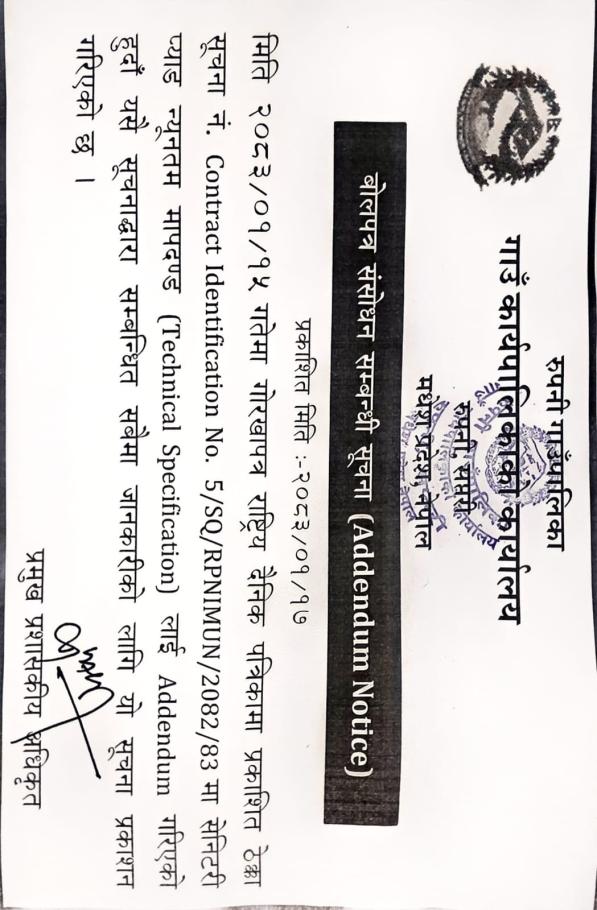 रुपनी गाउँपालिका
गाउँ कार्यपालिकाको कार्यालय
रुपनी, सप्तरी
मधेश प्रदेश, नेपाल
बोलपत्र संसोधन सम्बन्धी सूचना (Addendum Notice)
प्रकाशित मिति :-२०८३/०१/१७
मिति २०८३/०१/१५ गतेमा गोरखापत्र राष्ट्रिय दैनिक पत्रिकामा प्रकाशित ठेक्का
सूचना नं. Contract Identification No. 5/SQ/RPNIMUN/2082/83 मा सेनिटरी
प्याड न्यूनतम मापदण्ड (Technical Specification) लाई Addendum गरिएको
हुदाँ यसै सूचनाद्वारा सम्बन्धित सबैमा जानकारीको लागि यो सूचना प्रकाशन
गरिएको छ ।
प्रमुख प्रशासकीय अधिकृत